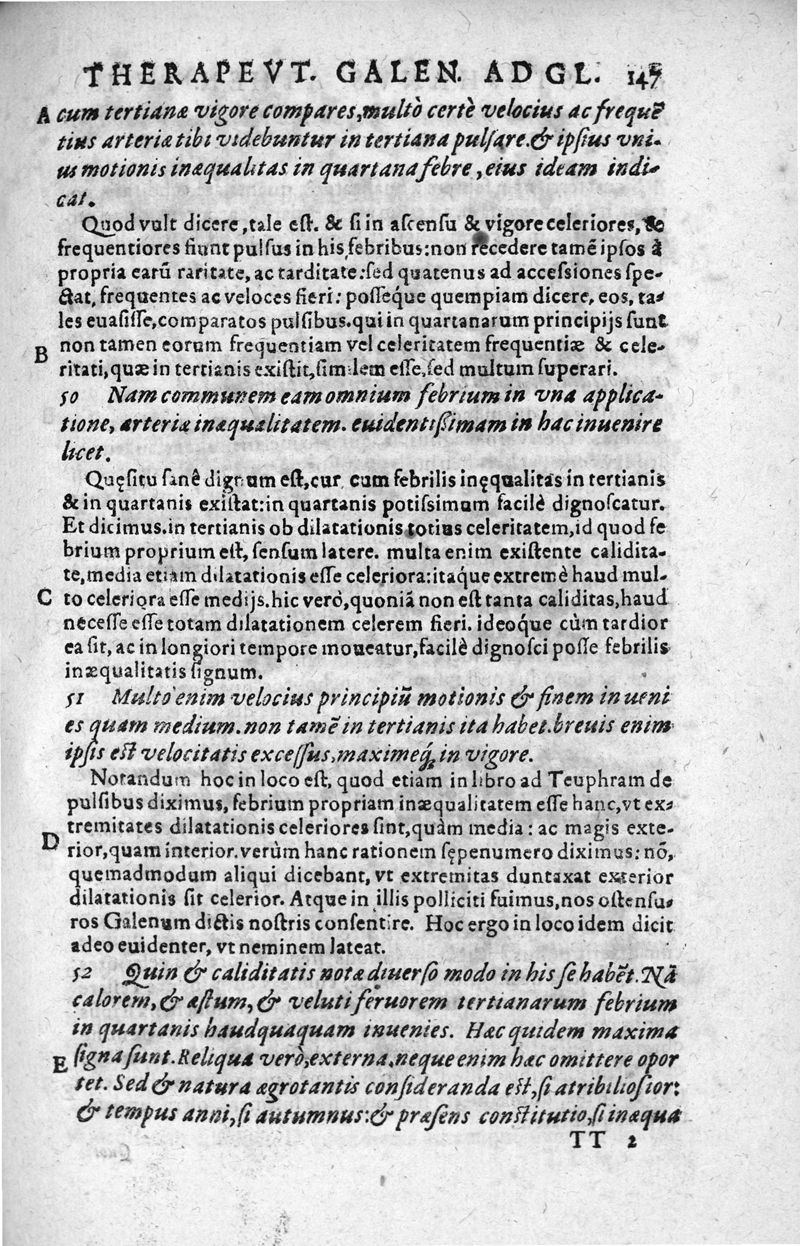 THERAPEVT. GALEN. AD GL. 147
A cum tertianæ vigore compares, multò certè velocius ac frequẽ
tius arteriæ tibi videbuntur in tertiana pulsare. & ipsius vni-
us motionis inæqualitas in quartana febre, eius ideam indi-
cat.
Quod vult dicere, tale est. & si in ascensu & vigore celeriores, &
frequentiores fiunt pulsus in his febribus: non recedere tamẽ ipsos à
propria earũ raritate, ac tarditate: sed quatenus ad accessiones spe-
ctat, frequentes ac veloces fieri: posseq́ue quempiam dicere, eos, ta-
les euasisse, comparatos pulsibus. qui in quartanarum principijs sunt
B non tamen eorum frequentiam vel celeritatem frequentiæ & cele-
ritati, quæ in tertianis existit, similem esse, sed multum superari.
50 Nam communem eam omnium febrium in vna applica-
tione, arteriæ inæqualitatem. euidentißimam in hac inuenire
licet.
Quęsitu sanê dignum est, cur cum febrilis inęqualitas in tertianis
& in quartanis existat: in quartanis potissimum facilè dignoscatur.
Et dicimus. in tertianis ob dilatationis totius celeritatem, id quod fe
brium proprium est, sensum latere. multa enim existente calidita-
te, media etiam dilatationis esse celeriora: itaq́ue extremè haud mul-
C to celeriora esse medijs. hic verò, quoniã non est tanta caliditas, haud
necesse esse totam dilatationem celerem fieri. ideoque cùm tardior
ea sit, ac in longiori tempore moueatur, facilè dignosci posse febrilis
inæqualitatis signum.
51 Multò enim velocius principiũ motionis & finem inueni
es quam medium. non tamẽ in tertianis ita habet. breuis enim
ipsis est velocitatis excessus, maximeq́; in vigore.
Notandum hoc in loco est, quod etiam in libro ad Teuphram de
pulsibus diximus, febrium propriam inæqualitatem esse hanc, vt ex-
tremitates dilatationis celeriores sint, quàm media: ac magis exte-
D rior, quam interior. verùm hanc rationem sępenumero diximus: nõ,
quemadmodum aliqui dicebant, vt extremitas duntaxat exterior
dilatationis sit celerior. Atque in illis polliciti fuimus, nos ostensu-
ros Galenum dictis nostris consentire. Hoc ergo in loco idem dicit
adeo euidenter, vt neminem lateat.
52 Quin & caliditatis nota diuerso modo in his se habẽt. Nã
calorem, & æstum, & veluti feruorem tertianarum febrium
in quartanis haudquaquam inuenies. Hæc quidem maxima
E signa sunt. Reliqua verò, externa, neque enim hæc omittere opor
tet. Sed & natura ægrotantis consideranda est, si atribiliosior:
& tempus anni, si autumnus: & præsens constitutio, si inæqua
TT 2